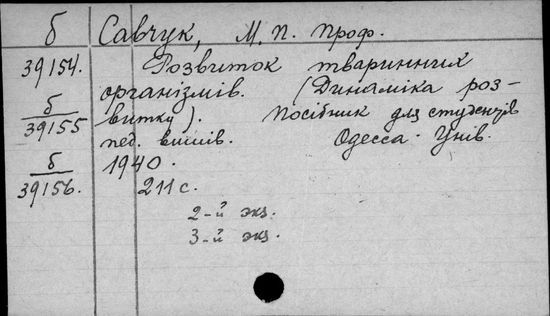 б Савчук, М. П. Проф.
39154. Розвиток тваринних
організмів. (Динаміка роз-
б
39155 витку). Посібник для студентів
пед. вишів. Одесса. Унів.
б 1940.
39156. 211 с.
2-й экз.
3-й экз.